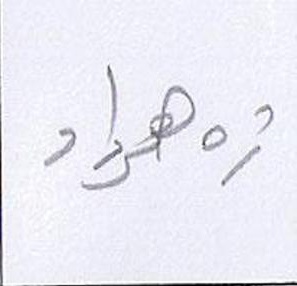 ده هزار